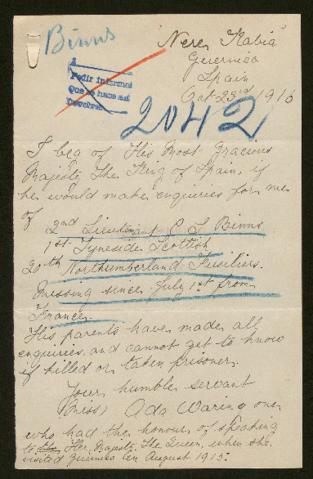 Binns
"Neres Kabia"
Guernica
Spain
Oct 23rd 1916
Pedir informes
Que se hace así
Devolver
2042
I beg of His Most Gracious
Majesty The King of Spain, if
he would make enquiries for me
of
2nd Lieutenant C I Binns
1st Tyneside Scottish
20th Northumberland Fusiliers.
Missing since July 1st from
France.
His parents have made all
enquiries and cannot get to know
if killed or taken prisoner.
Your humble servant
(Miss) Ada Waring one
who had the honour of speaking
to Her Majesty The Queen, when she
visited Guernica in August 1915.